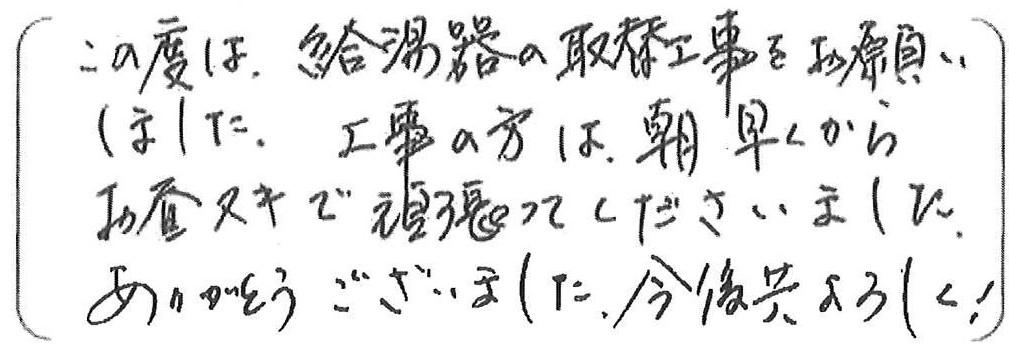 この度は、給湯器の取替工事をお願い
しました。 工事の方は、朝早くから
お昼ヌキで頑張ってくださいました。
ありがとうございました。今後共よろしく!